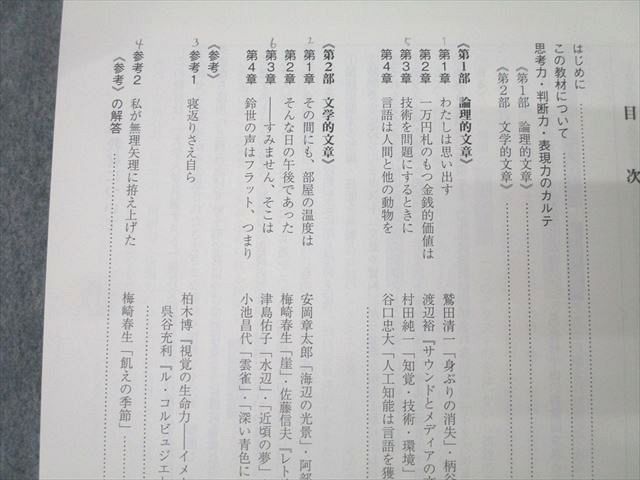 目　次
はじめに
この教材について
思考力・判断力・表現力のカルテ
《第1部　論理的文章》
《第2部　文学的文章》
《第1部　論理的文章》
1 第1章　わたしは思い出す　鷲田清一「身ぶりの消失」・柄谷
第2章　一万円札のもつ金銭的価値は　渡辺裕『サウンドとメディアの
5 第3章　技術を問題にするときに　村田純一「知覚・技術・環境」
第4章　言語は人間と他の動物を　谷口忠大「人工知能は言語を獲
《第2部　文学的文章》
2 第1章　その間にも、部屋の温度は　安岡章太郎「海辺の光景」・阿部
第2章　そんな日の午後であった　梅崎春生「崖」・佐藤信夫『レト
6 第3章　――すみません、そこは　津島佑子「水辺」・「近頃の夢」
第4章　鈴世の声はフラット、つまり　小池昌代「雲雀」・「深い青色に
《参考》
3 参考1　寝返りさえ自ら　柏木博『視覚の生命力――イメ
呉谷充利『ル・コルビュジエ
4 参考2　私が無理矢理に拵え上げた　梅崎春生「飢えの季節」
《参考》の解答